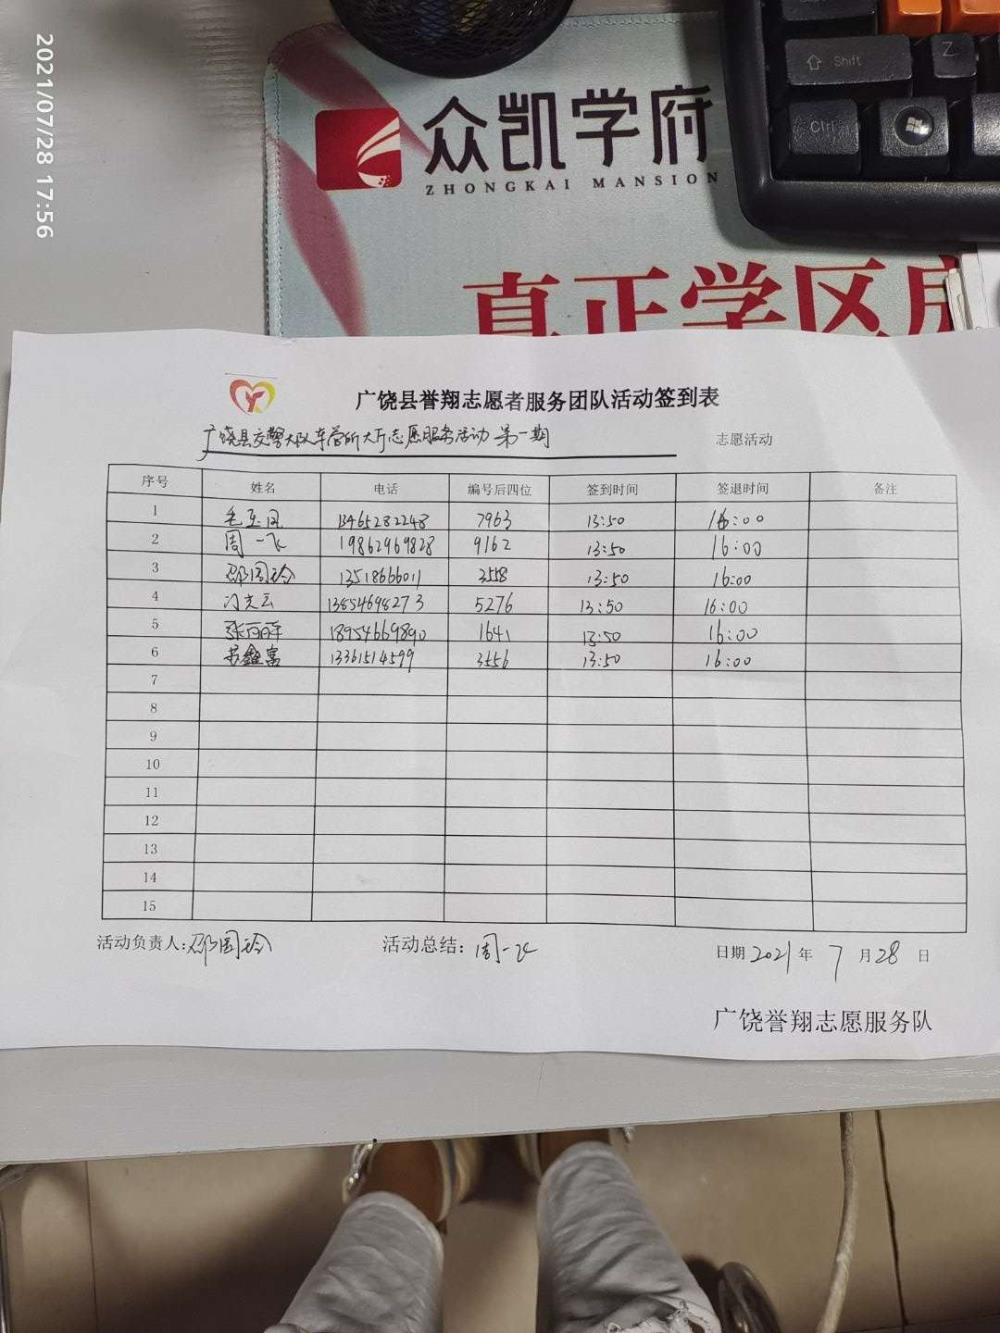 2021/07/28 17:56
众凯学府
ZHONGKAI MANSION
真正学区房
Shift Z
Ctrl
广饶县誉翔志愿者服务团队活动签到表
广饶县交警大队车管所大厅志愿服务活动 第一期 志愿活动
序号 姓名 电话 编号后四位 签到时间 签退时间 备注
1 毛玉凤 13465282248 7963 13:50 16:00
2 周一飞 19862969828 9162 13:50 16:00
3 邵周玲 13518666011 3558 13:50 16:00
4 冯光云 13854698273 5276 13:50 16:00
5 18954669890 1641 13:50 16:00
6 13361514599 3556 13:50 16:00
7
8
9
10
11
12
13
14
15
活动负责人:邵周玲 活动总结:周一飞 日期 2021 年 7 月 28 日
广饶誉翔志愿服务队